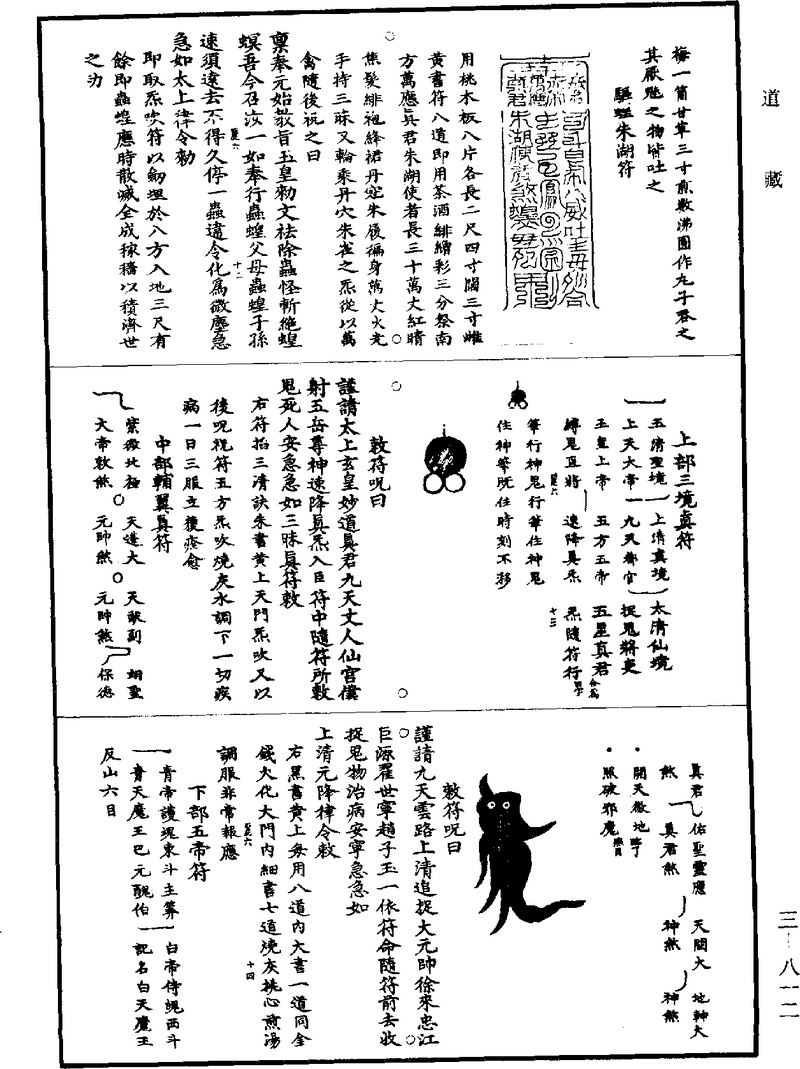 道藏
梅一箇甘草三寸煎數沸團作丸子吞之
其厭魅之物皆吐之
驅蝗朱湖符
用桃木板八片各長二尺四寸闊三寸雌
黃書符八道即用茶酒緋繒彩三分祭南
方萬應真君朱湖使者長三十萬丈紅睛
焦髮緋袍絳裙丹冠朱履徧身萬丈火光
手持三昧叉輪乘丹穴朱雀之炁從以萬
禽隨後祝之曰
稟奉元始敕旨玉皇勑文祛除蟲怪斬絕蝗
螟吾今召汝一如奉行蟲蝗父母蟲蝗子孫
速須遠去不得久停一蟲違令化為微塵急
急如太上律令勑
即取炁吹符以劒埋於八方入地三尺有
餘即蟲蝗應時散滅全成稼穡以積濟世
之功
上部三境真符
玉清聖境 上清真境 太清仙境
上天大帝 九天都官 捉鬼將吏
玉皇上帝 五方五帝 五星真君
縛鬼直將 速降真炁 炁隨符行
筆行神鬼行筆住神鬼
住神筆既住時刻不移
十三
敕符呪曰
謹請太上玄皇妙道真君九天丈人仙宮僕
射五岳尊神速降真炁入臣符中隨符所敕
鬼死人安急急如三昧真符敕
右符掐三清訣朱書黃上天門炁吹又以
後呪祝符五方炁吹燒灰水調下一切疾
病一日三服立獲痊愈
中部輔翼真符
紫微北極 天蓬大 天猷副 翊聖
大帝敕煞 元帥煞 元帥煞 保德
真君 佑聖靈應 天關大 地神大
煞 真君煞 神煞 神煞
開天徹地
照破邪魔
敕符呪曰
謹請九天雲路上清追捉大元帥徐來忠江
巨源翟世寧趙子玉一依符命隨符前去收
捉鬼物治病安寧急急如
上清元降律令敕
右黑書黃上每用八道內大書一道同金
錢大化大門內細書七道燒灰桃心煎湯
調服非常報應
十四
下部五帝符
青帝護魂東斗主筭 白帝侍魄西斗
青天魔王巴元醜伯 記名白天魔王
反山六目
三一八一二